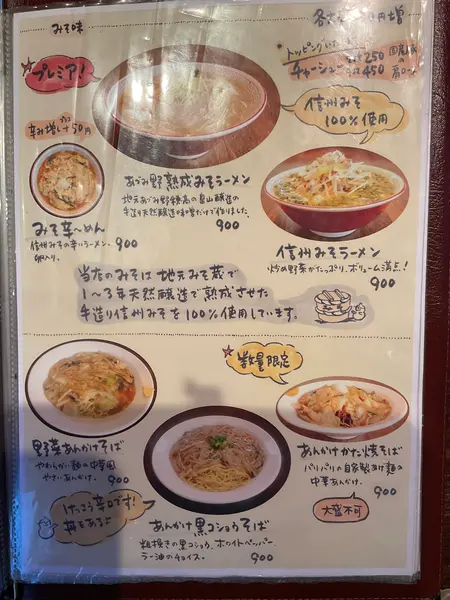 みそ味
プレミア!
辛み増し プラス50円
トッピング
250
チャーシュー 450
信州みそ
100%使用
あづみ野熟成みそラーメン
地元あづみ野穂高の
手造り天然醸造味噌だけで作りました。
900
みそ辛〜めん
信州みその辛いラーメン。
卵入り。 900
信州みそラーメン
炒め野菜がたっぷり、ボリューム満点!
900
当店のみそは地元みそ蔵で
1〜3年天然醸造で熟成させた
手造り信州みそを100%使用しています。
数量限定
野菜あんかけそば
やわらかい麺の中華風
やさいあんかけ。
900
あんかけかた焼そば
パリパリの自家製あげ麺の
中華あんかけ。
900
大盛不可
けっこう辛口です!
丼もあるよ
あんかけ黒コショウそば
粗挽きの黒コショウ、ホワイトペッパー
ラー油のチョイス。 900